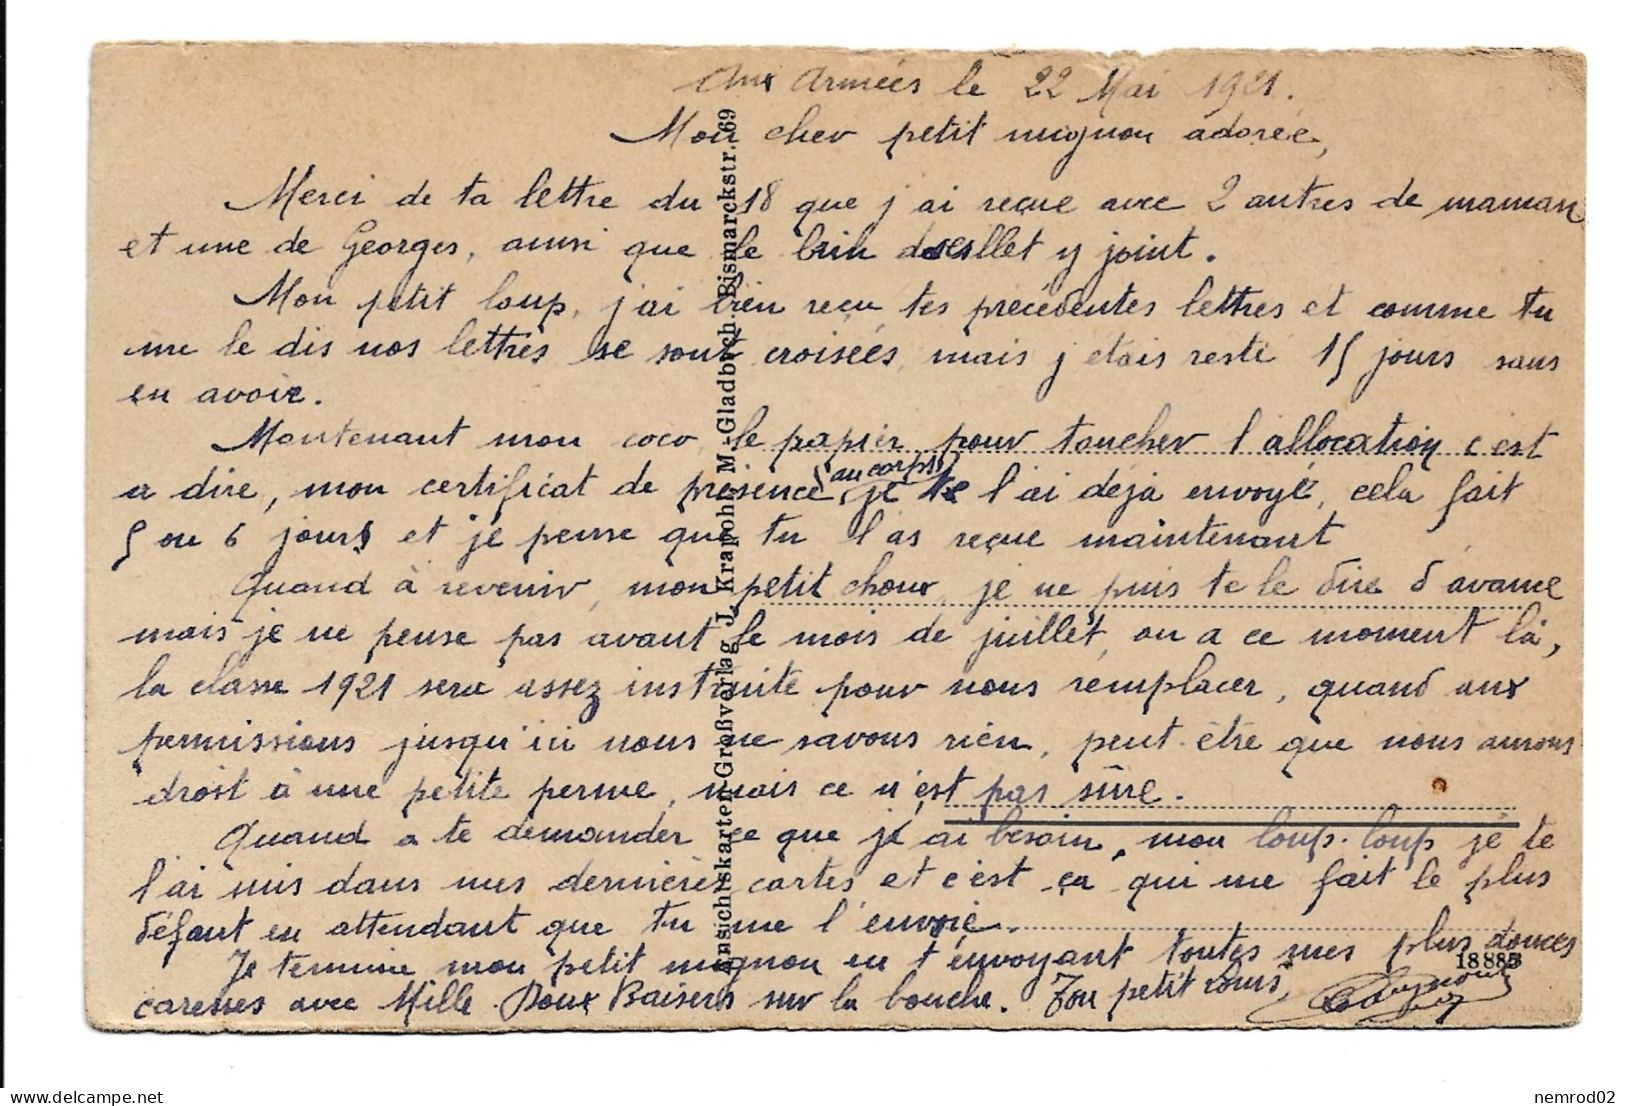 Aux Armées le 22 Mai 1921.
Mon cher petit mignon adorée,
Merci de ta lettre du 18 que j'ai reçue avec 2 autres de maman
et une de Georges, ainsi que le brin d'oeillet y joint.
Mon petit loup, j'ai bien reçu tes précédentes lettres et comme tu
me le dis nos lettres se sont croisées, mais j'étais resté 15 jours sans
en avoir.
Maintenant mon coco, le papier pour toucher l'allocation c'est
a dire, mon certificat de présence au corps, je te l'ai déjà envoyé, cela fait
5 ou 6 jours et je pense que tu l'as reçue maintenant
Quand à revenir, mon petit choux, je ne puis te le dire d'avance
mais je ne pense pas avant le mois de juillet, ou a ce moment là,
la classe 1921 sera assez instruite pour nous remplacer, quand aux
permissions jusqu'ici nous ne savons rien, peut-être que nous aurons
droit à une petite perme, mais ce n'est pas sûre.
Quand a te demander ce que j'ai besoin, mon loup-loup je te
l'ai mis dans mes dernières cartes et c'est ça qui me fait le plus
défaut en attendant que tu me l'envoie.
Je termine mon petit mignon en t'envoyant toutes mes plus douces
caresses avec Mille Doux Baisers sur la bouche. Ton petit Louis,
Ansichtskarten-Großverlag J. Krapohl, M.-Gladbach. Bismarckstr. 69
18885
nemrod02